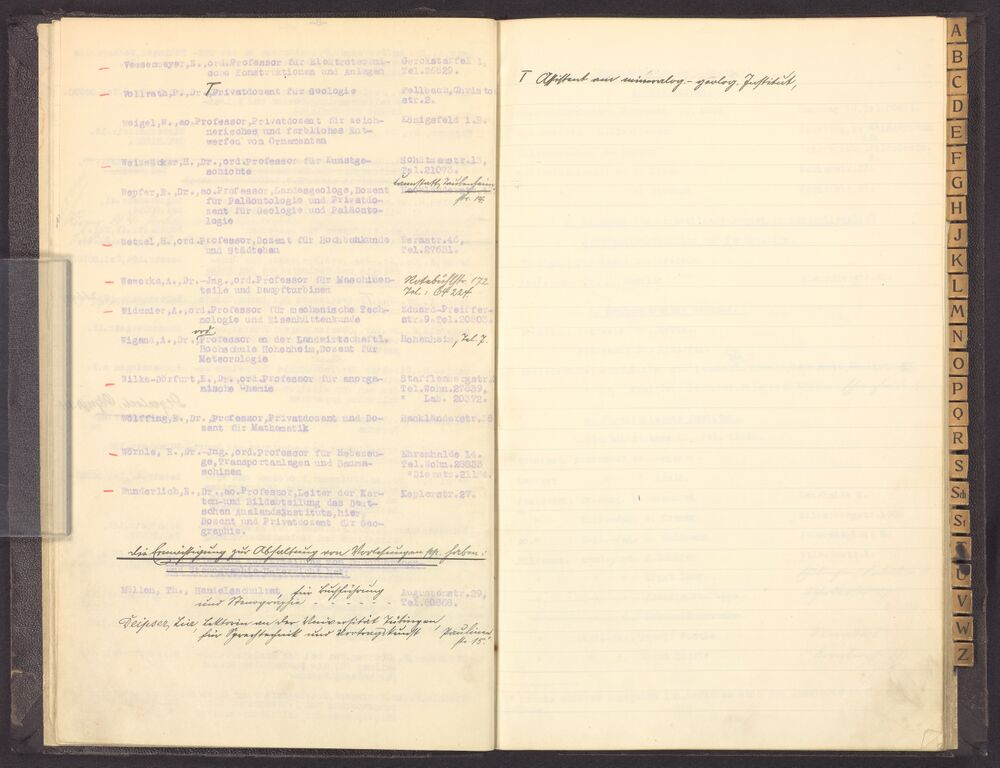 -8-
Veesenmeyer,E.,ord.Professor für Elektrotechni-
sche Konstruktionen und Anlagen
Gerokstaffel 1,
Tel.26629.
Vollrath,P.,Dr. T Privatdozent für Geologie
Fellbach,Christo
str.2.
Weigel,W.,ao.Professor,Privatdozent für zeich-
nerisches und farbliches Ent-
werfen von Ornamenten
Königsfeld i.B.
Weizsäcker,H.,Dr.,ord.Professor für Kunstge-
schichte
Schützenstr.13,
Tel.21073.
Wepfer,E.,Dr.,ao.Professor,Landesgeologe,Dozent
für Paläontologie und Privatdo-
zent für Geologie und Paläonto-
logie
Cannstatt, Taubenheim
str. 14.
Wetzel,H.,ord.Professor,Dozent für Hochbaukunde
und Städtebau
Werastr.46,
Tel.27631.
Wewerka,A.,Dr.-Jng.,ord.Professor für Maschinen-
teile und Dampfturbinen
Rotebühlstr. 172
Tel.: 64224
Widmaier,A.,ord.Professor für mechanische Tech-
nologie und Eisenhüttenkunde
Eduard-Pfeiffer-
str.9.Tel.20803.
ord.
Wigand,A.,Dr.,Professor an der Landwirtschaftl.
Hochschule Hohenheim,Dozent für
Meteorologie
Hohenheim, Tel. 7.
Wilke-Dörfurt,E.,Dr.,ord.Professor für anorga-
nische Chemie
Stafflenbergstr.
Tel.Wohn.27639,
" Lab. 20372.
Wölffing,E.,Dr.,Professor,Privatdozent und Do-
zent für Mathematik
Hackländerstr.38
Wörnle, R.,Dr.-Jng.,ord.Professor für Hebezeu-
ge,Transportanlagen und Bauma-
schinen
Ehrenhalde 14.
Tel.Wohn.28833
"Dienstz.21134.
Wunderlich,E.,Dr.,ao.Professor,Leiter der Kar-
ten-und Bildabteilung des Deut-
schen Auslandsinstituts,hier,
Dozent und Privatdozent für Geo-
graphie.
Keplerstr.27.
Die Ermächtigung zur Abhaltung von Vorlesungen pp. haben:
Müllen, Th., Handelsschulrat, für Buchführung
und Stenographie
Augustenstr.29,
Tel.60868.
Deipser, Lektorin an der Universität Tübingen,
für Sprechtechnik und Vortragskunst
Paulinen
str. 15.
T Assistent am mineralog.-geolog. Institut,
A
B
C
D
E
F
G
H
J
K
L
M
N
O
P
Q
R
S
Sch
St
T
U
V
W
Z